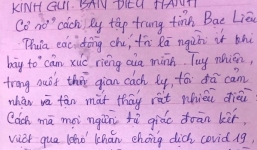 KÍNH GỬI: BAN ĐIỀU HÀNH
Cơ sở cách ly tập trung tỉnh Bạc Liêu
Thưa các đồng chí, tôi là người ít khi
bày tỏ cảm xúc riêng của mình. Tuy nhiên,
trong suốt thời gian cách ly, tôi đã cảm
nhận và tận mắt thấy rất nhiều điều
Cách mà mọi người tự giác đoàn kết,
vượt qua khó khăn chống dịch covid 19,